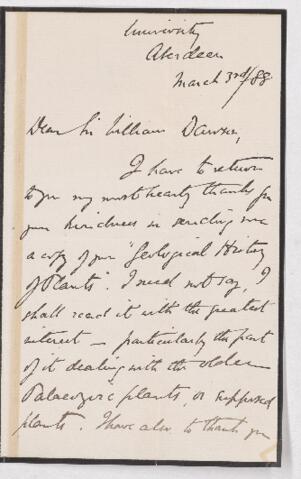 University
Aberdeen
March 3rd/88
Dear Sir William Dawson,
I have to return
to you my most hearty thanks for
your kindness in sending me
a copy of your "Geological History
of Plants". I need not say, I
shall read it with the greatest
interest – particularly the part
of it dealing with the older
Palaeozoic plants, or supposed
plants. I have also to thank you